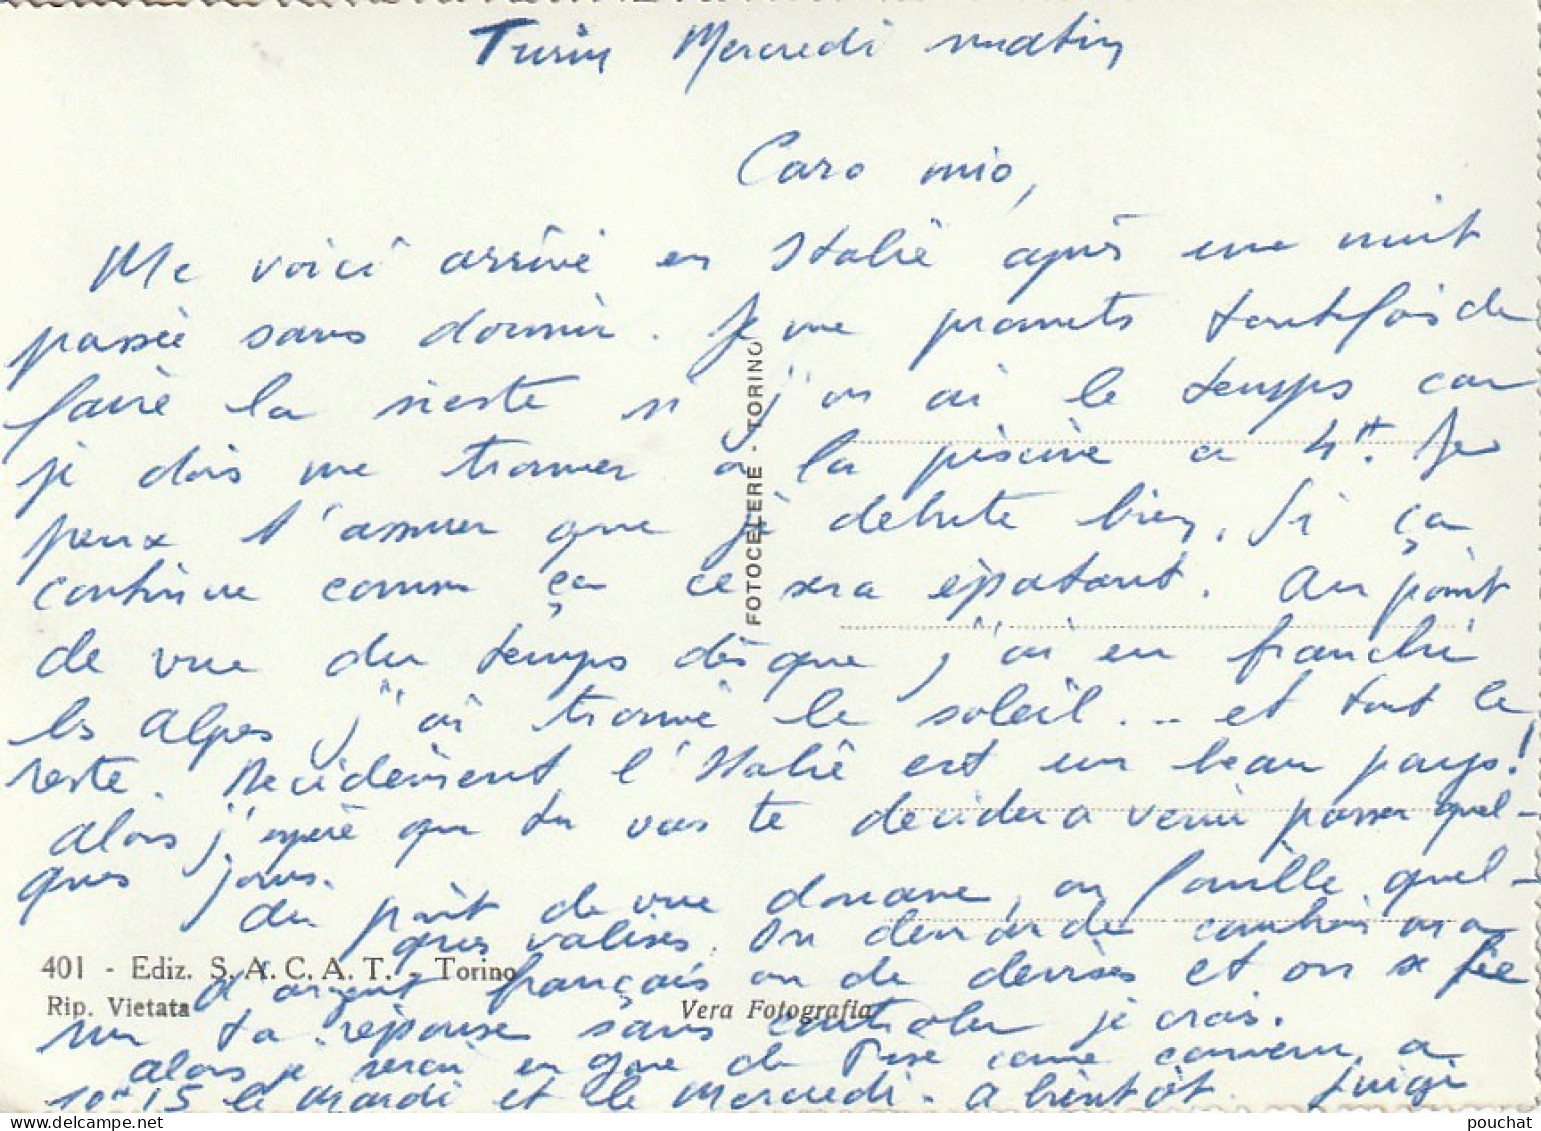 Turin Mercredi matin
Caro mio,
Me voici arrivé en Italie après une nuit
passée sans dormir. Je me promets toutefois de
faire la sieste si j'en ai le temps car
je dois me trouver à la piscine à 4H. Je
peux t'assurer que je débute bien, Si ça
continue comme ça ce sera épatant. Au point
de vue du temps dès que j'ai eu franchi
les Alpes j'ai trouvé le soleil... et tout le
reste. Décidément l'Italie est un beau pays!
Alors j'espère que tu vas te décider à venir passer quel-
ques jours.
Du point de vue douane, on fouille quel-
ques valises. On demande combien on a
d'argent français ou de devises et on se fie
sur ta réponse sans contrôler je crois.
Alors je serai en gare de Pise comme convenu à
10H15 le Mardi et le Mercredi. A bientôt. Luigi
FOTOCELERE - TORINO
401 - Ediz. S. A. C. A. T. - Torino
Rip. Vietata
Vera Fotografia
pouchat